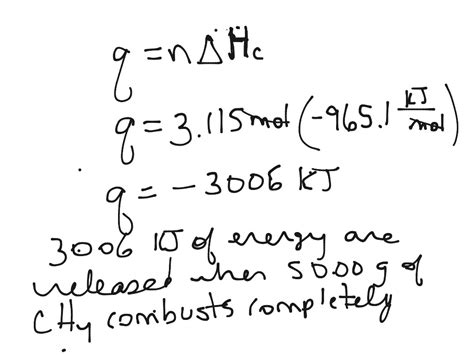 q = nΔHc
q = 3.115 mol (-965.1 kJ/mol)
q = -3006 KJ
3006 KJ of energy are
released when 50.00 g of
CH4 combusts completely